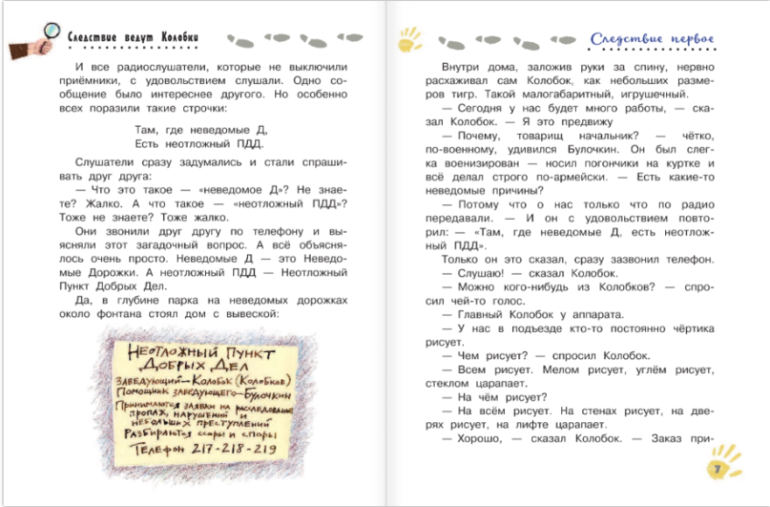 Следствие ведут Колобки
И все радиослушатели, которые не выключили
приёмники, с удовольствием слушали. Одно со-
общение было интереснее другого. Но особенно
всех поразили такие строчки:
Там, где неведомые Д,
Есть неотложный ПДД.
Слушатели сразу задумались и стали спраши-
вать друг друга:
— Что это такое — «неведомое Д»? Не знае-
те? Жалко. А что такое — «неотложный ПДД»?
Тоже не знаете? Тоже жалко.
Они звонили друг другу по телефону и вы-
ясняли этот загадочный вопрос. А всё объясня-
лось очень просто. Неведомые Д — это Неведо-
мые Дорожки. А неотложный ПДД — Неотложный
Пункт Добрых Дел.
Да, в глубине парка на неведомых дорожках
около фонтана стоял дом с вывеской:
Неотложный Пункт
Добрых Дел
Заведующий—Колобок (Колобков)
Помощник заведующего—Булочкин
Принимаются заявки на расследование
пропаж, нарушений и
небольших преступлений
Разбираются ссоры и споры
Телефон 217-218-219
Следствие первое
Внутри дома, заложив руки за спину, нервно
расхаживал сам Колобок, как небольших разме-
ров тигр. Такой малогабаритный, игрушечный.
— Сегодня у нас будет много работы, — ска-
зал Колобок. — Я это предвижу
— Почему, товарищ начальник? — чётко,
по-военному, удивился Булочкин. Он был слег-
ка военизирован — носил погончики на куртке и
всё делал строго по-армейски. — Есть какие-то
неведомые причины?
— Потому что о нас только что по радио
передавали. — И он с удовольствием повто-
рил: — «Там, где неведомые Д, есть неотлож-
ный ПДД».
Только он это сказал, сразу зазвонил телефон.
— Слушаю! — сказал Колобок.
— Можно кого-нибудь из Колобков? — спро-
сил чей-то голос.
— Главный Колобок у аппарата.
— У нас в подъезде кто-то постоянно чёртика
рисует.
— Чем рисует? — спросил Колобок.
— Всем рисует. Мелом рисует, углём рисует,
стеклом царапает.
— На чём рисует?
— На всём рисует. На стенах рисует, на две-
рях рисует, на лифте царапает.
— Хорошо, — сказал Колобок. — Заказ при-
7